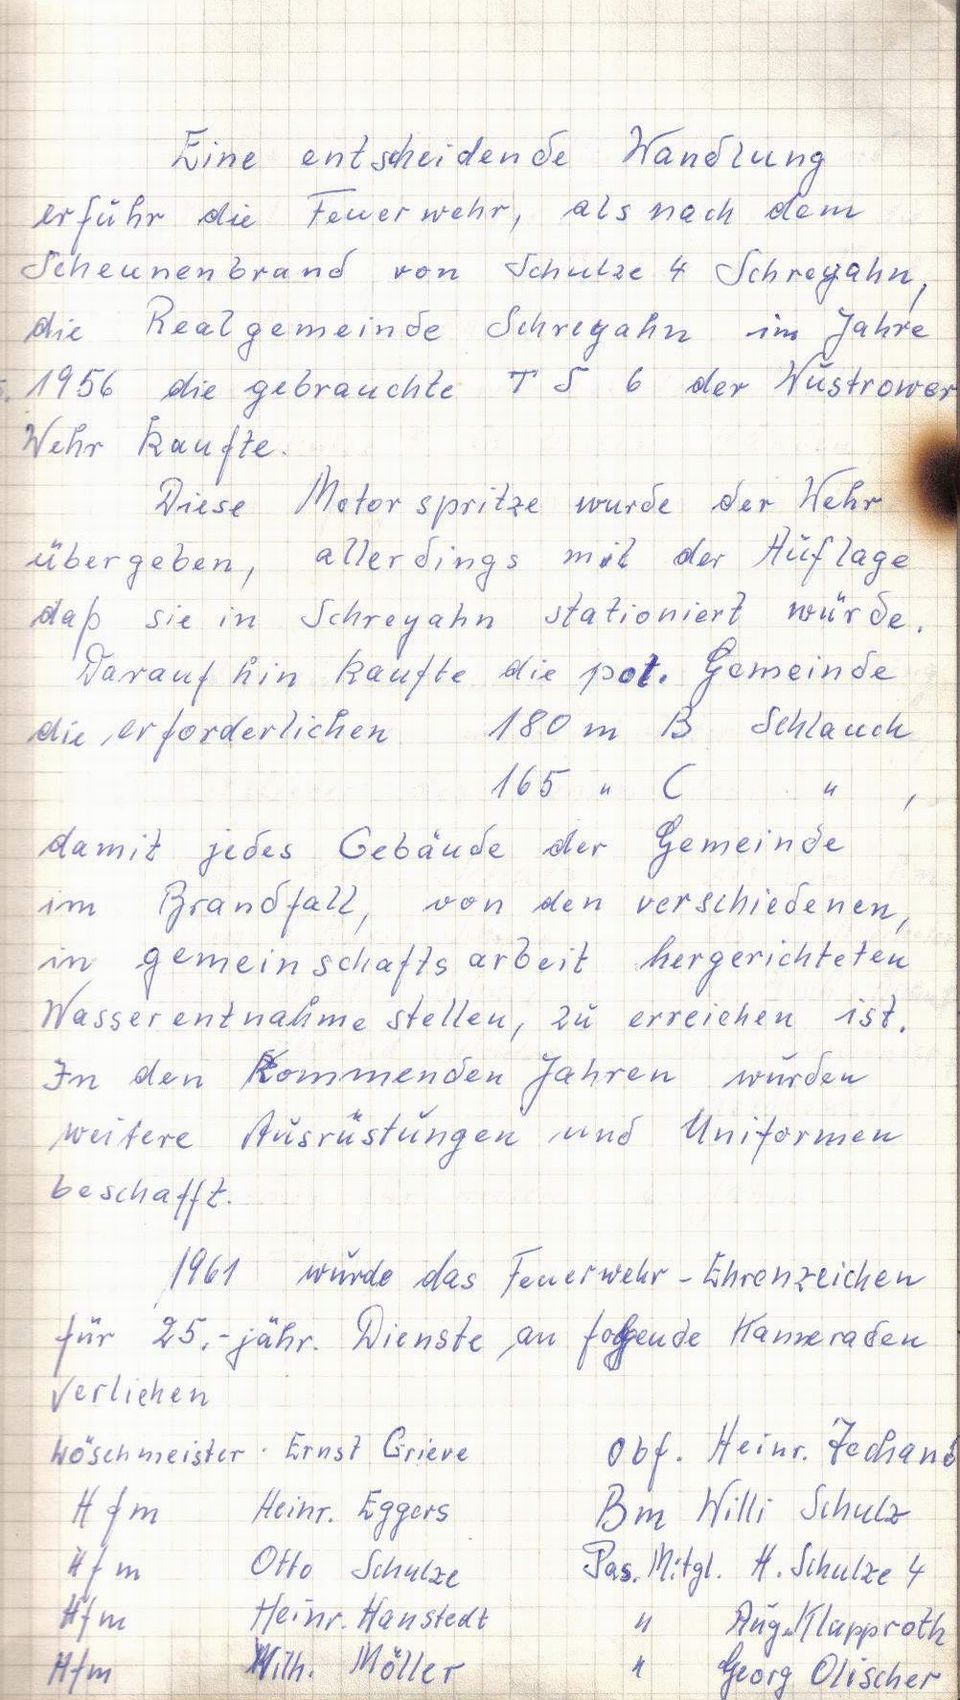 Eine entscheidende Wandlung
erfuhr die Feuerwehr, als nach dem
Scheunenbrand von Schulze 4 Schreyahn,
die Realgemeinde Schreyahn im Jahre
1956 die gebrauchte T S 6 der Wustrower
Wehr kaufte.
Diese Motorspritze wurde der Wehr
übergeben, allerdings mit der Auflage
daß sie in Schreyahn stationiert würde.
Daraufhin kaufte die pol. Gemeinde
die erforderlichen 180 m B Schlauch
165 " C " ,
damit jedes Gebäude der Gemeinde
im Brandfall, von den verschiedenen,
in gemeinschaftsarbeit hergerichteten
Wasserentnahmestellen, zu erreichen ist.
In den Kommenden Jahren wurden
weitere Ausrüstungen und Uniformen
beschafft.
1961 wurde das Feuerwehr-Ehrenzeichen
für 25.-jähr. Dienste an folgende Kameraden
verliehen
Löschmeister Ernst Grieve Obf. Heinr.
Hfm Heinr. Eggers Bm Willi Schulz
Hfm Otto Schulze Pas. Mitgl. H. Schulze 4
Hfm Heinr. Hanstedt " Aug. Klapproth
Hfm Wilh. Möller " Georg Olischer